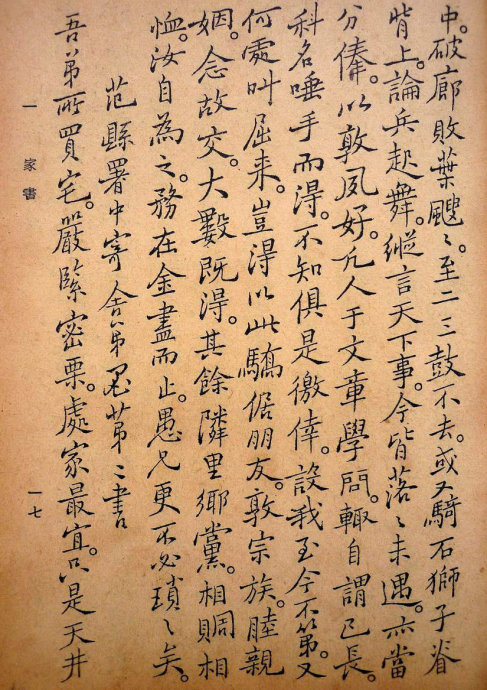 中。破廊敗葉颼〻。至二三鼓不去。或又騎石獅子脊
背上。論兵起舞。縱言天下事。今皆落〻未遇。亦當
分俸。以敦夙好。凡人于文章學問。輒自謂己長。
科名唾手而得。不知俱是徼倖。設我至今不第。又
何處叫屈来。豈得以此驕倨朋友。敦宗族。睦親
姻。念故交。大數既得。其餘隣里鄉黨。相賙相
恤。汝自為之。務在金盡而止。愚兄更不必瑣〻矣。
范縣署中寄舍弟墨第二書
吾弟所買宅。嚴緊密栗。處家最宜。只是天井
一 家書 一七